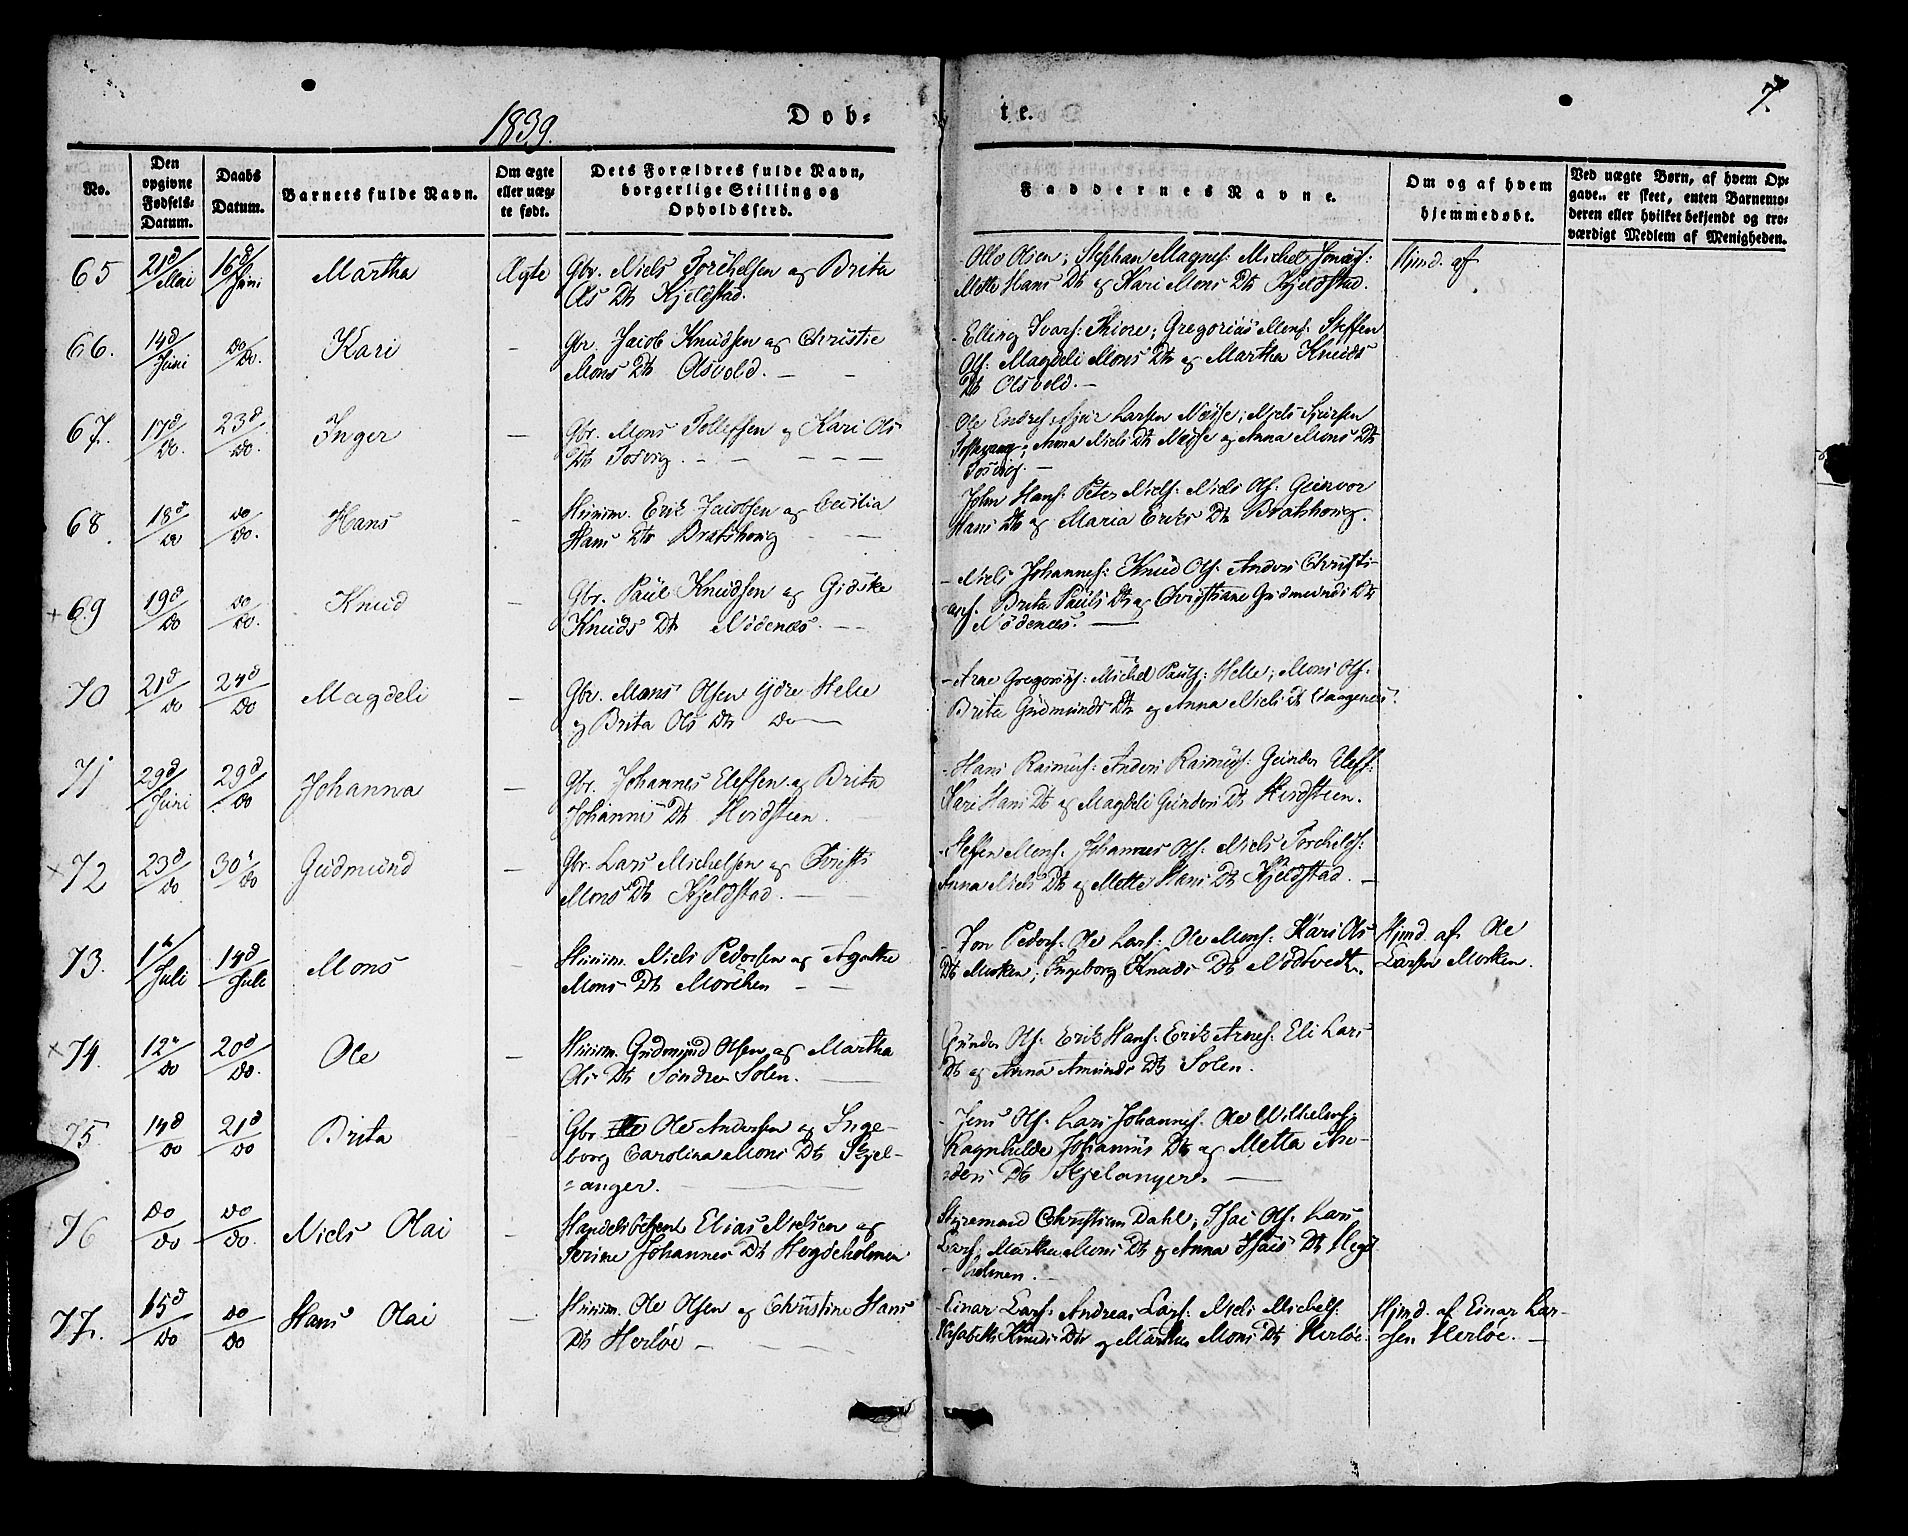 1839.
Døb-
te.
7.
No.
Den opgivne Fødsels-Datum.
Daabs Datum.
Barnets fulde Navn.
Om ægte eller uæg-te født.
Dets Forældres fulde Navn, borgerlige Stilling og Opholdssted.
Faddernes Navne.
Om og af hvem hjemmedøbt.
Ved uægte Børn, af hvem Op-gaven er skeet, enten Barnemo-deren eller hvilket bekjendt og tro-værdigt Medlem af Menigheden.
65 21d/Mai 16d/Juni Martha Ægte Gbr. Niels Torchelsen og Brita
Ols Dt Kjeldstad.
Olle Olsen; Stephan Magnes: Michel Jonæs:
Mette Hans Dt og Kari Mons Dt Kjeldstad.
Hjmd. af
66. 14d/Juni do/do. Kari - Gbr. Jacob Knudsen og Christie
Mons Dt Olsvold. - -
Elling Ivars: Thiore; Gregorius Mons: Steffen
Ols: Magdeli Mons Dt og Martha Knuds
Dt Olsvold. -
67. 17d/do. 23d/do. Inger - Gbr. Mons Tollefsen og Kari Ols
Dt Tosvig. - - - - -
Ole Endres: Sjur Larsen Næsse; Niels Sjursen
Anna Niels Dt Næsse og Anna Mons Dt
Tosvig. -
68. 18d/do do/do. Hans - Huusm. Erik Jacobsen og Cecilia
Hans Dt Bratshoug - -
John Hans: Peter Niels: Niels Ols: Geirvor
Hans Dt og Maria Eriks Dt Bratshoug.
+ 69 19d/do do/do. Knud - Gbr. Paul Knudsen og Gidske
Knuds Dt Nødenæs. -
- Niels Johannes: Knud Ols: Anders Christi-
ans. Brita Pauls Dt og Christiane Gudmunds Dt
Nødenæs. -
70 21d/do 24d/do Magdeli - Gbr. Mons Olsen Ydre Helle
og Brita Ols Dt do -
- Arne Gregorius: Michel Pauls: Helle; Mons Ols:
Brita Gudmunds Dt og Anna Niels Dt
71 29d/Juni 29d/do Johanna - Gbr. Johannes Elefsen og Brita
Johannes Dt Hvidsteen.
- Hans Rasmus: Anders Rasmus: Gunder Elefs:
Kari Hans Dt og Magdeli Gunders Dt Hvidsteen.
× 72 23d/do 30d/do Gudmund - Gbr. Lars Michelsen og Christi
Mons Dt Kjeldstad. - -
- Steffen Mons: Johannes Ols: Niels Torchels:
Anna Niels Dt og Mette Hans Dt Kjeldstad. -
73. 1te/Juli 14d/Juli Mons - Huusm. Niels Pedersen og Agathe
Mons Dt Morchen - -
- Jon Peders: Ole Lars: Ole Mons: Kari Ols
Dt Morken; Ingeborg Knuds Dt Nødtvedt.
Hjmd. af Ole
Larsen Morken.
× 74. 12te/do 20d/do. Ole - Huusm. Gudmund Olsen og Martha
Ols Dt Søndre Solen. -
Gunder Ols: Erik Hans: Erik Arnes: Eli Lars
Dt og Anna Amunds Dt Solen.
75. 14d/do 21d/do Brita - Gbr. Ole Andersen og Inge-
borg Carolina Mons Dt Skjel-
=anger. -
- Jens Ols: Lars Johannes: Ole Wilhelms:
Ragnhilde Johannis Dt og Metta An-
=ders Dt Skjelanger. -
76 do/do do/do. Niels Olai - Handelsbetjent Elias Nielsen og
Serine Johannes Dt Hegøeholmen
Styremand Christian Dahl; Isac Ols: Lars
Lars: Martha Mons Dt og Anna Isacs Dt Hegø
holmen. -
77. 15d/do do/do Hans Olai - Huusm. Ole Olsen og Christine Hans
Dt Herløe - - - -
- Einar Lars: Andreas Lars: Niels Michels:
Elisabeth Knuds Dtr og Martha Mons Dt Herløe.
Hjmd. af Einar Lar-
sen Herløe. -